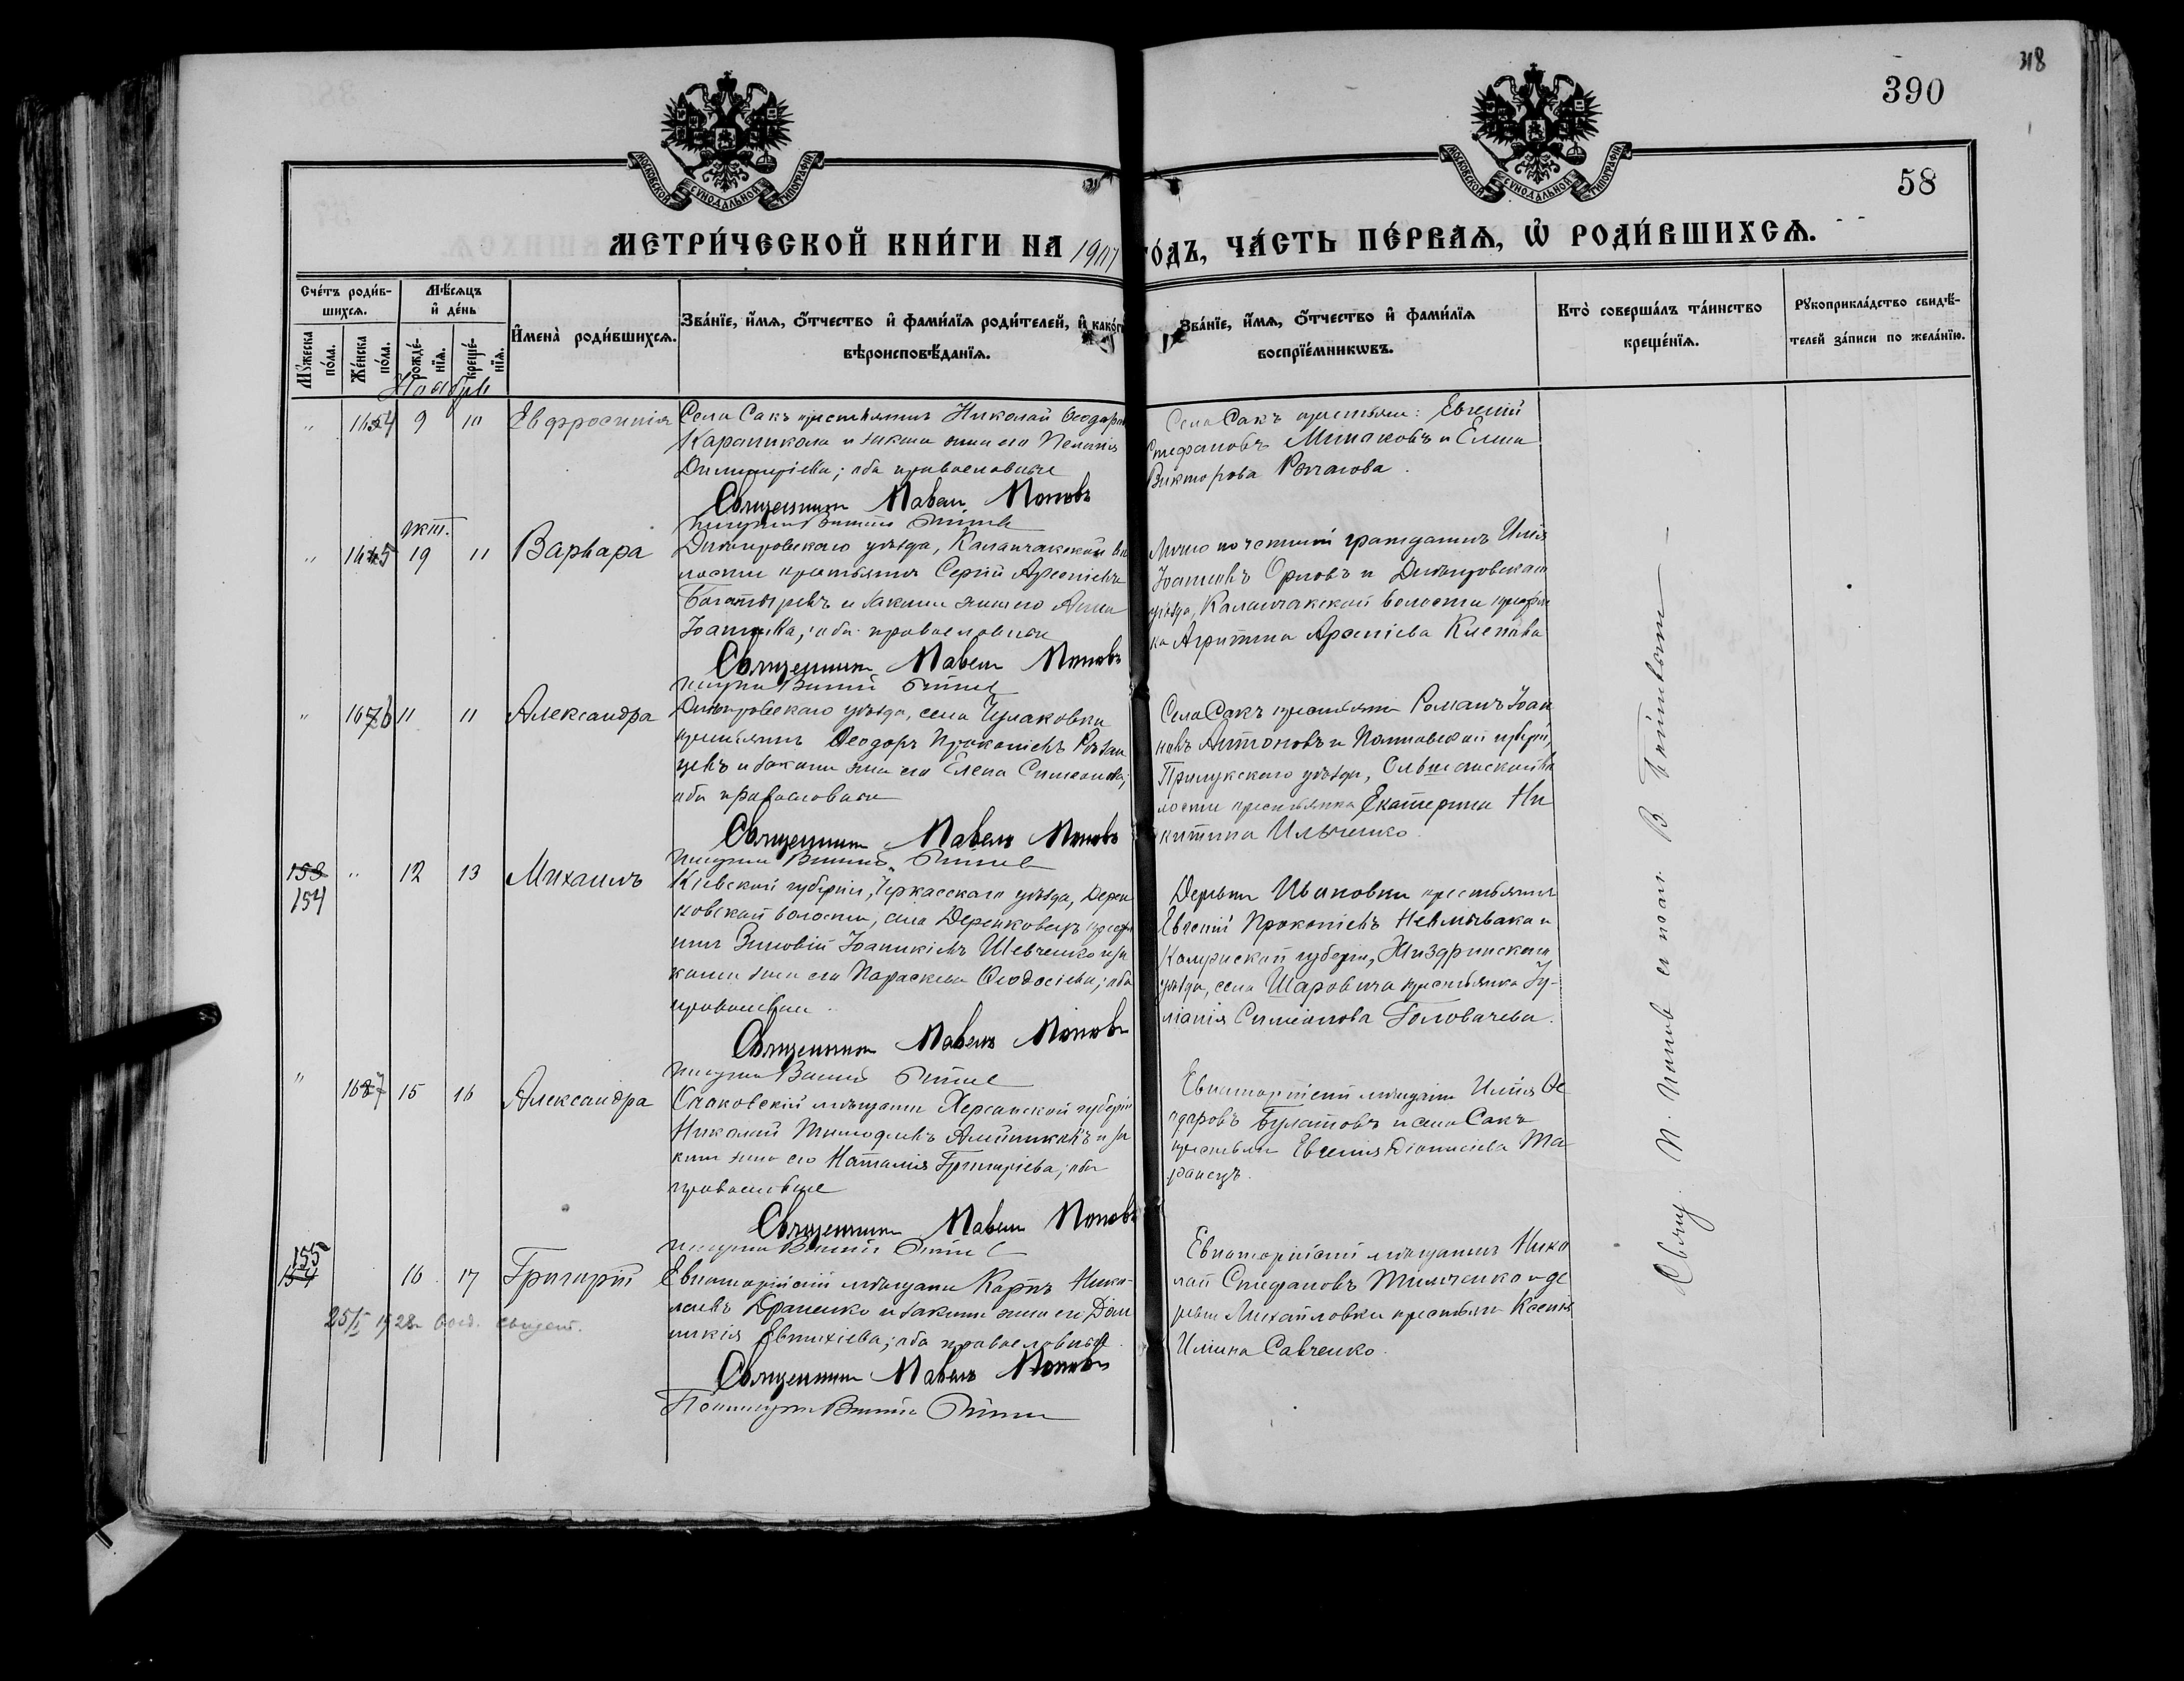 318
390
58
МОСКОВСКОЙ СУНОДАЛЬНОЙ ТИПОГРАФІИ
МОСКОВСКОЙ СУНОДАЛЬНОЙ ТИПОГРАФІИ
МЕТРИ́ЧЕСКОЙ КНИ́ГИ НА 1907 ГО́ДЪ, ЧА́СТЬ ПЕ́РВАѦ, Ѡ҆ РОДИ́ВШИХСѦ.
Сче́тъ роди́в-
шихсѧ.
Мѣ́сѧцъ
и҆ де́нь
Мꙋ́жеска
по́ла.
Же́нска
по́ла.
рожде́-
нїѧ.
креще́-
нїѧ.
И҆мена̀ роди́вшихсѧ.
Зва́нїе, и҆́мѧ, о҆́тчество и҆ фами́лїѧ роди́телей, и҆ како́гѡ
вѣроисповѣ́данїѧ.
Зва́нїе, и҆́мѧ, о҆́тчество и҆ фами́лїѧ
воспрїе́мникѡвъ.
Кто̀ соверша́лъ та́инство
креще́нїѧ.
Рꙋкоприкла́дство свидѣ́-
телей за́писи по жела́нїю.
Ноябрь
" 164 9 10 Евфросинія
Села Сакъ крестьянинъ Николай Ѳеодоровъ
и законная жена его Пелагія
Димитріева; оба православные
Священникъ Павелъ Поповъ
Села Сакъ крестьяне: Евгеній
Стефановъ Минаковъ и Елена
Викторова
окт.
" 165 19 11 Варвара
Днѣпровскаго уѣзда, Каланчакской во
лости крестьянинъ Сергій Арсеніевъ
Богатыревъ и законная жена его Анна
Іоаннова; оба православные
Священникъ Павелъ Поповъ
Лично почетный гражданинъ Илія
Іоанновъ Орловъ и Днѣпровскаго
уѣзда, Каланчакской волости крестьян
ка Агрипина Арсеніева Клепова
" 166 11 11 Александра
Днѣпровскаго уѣзда, села Чулаковки
крестьянинъ Ѳеодоръ Прокопіевъ Рязан
цевъ и законная жена его Елена Симеонова;
оба православные
Священникъ Павелъ Поповъ
Села Сакъ крестьянинъ Романъ Іоан
новъ Антоновъ и Полтавской губерніи,
Прилукскаго уѣзда, Ольшанской во
лости крестьянка Екатерина Ни
китина Ильченко.
153
154 " 12 13 Михаилъ
Кіевской губерніи, Черкасскаго уѣзда, Дерен
ковской волости, села Деренковецъ крестья
нинъ Зиновій Іоанникіевъ Шевченко и за
конная жена его Параскева Ѳеодосіева; оба
православные.
Священникъ Павелъ Поповъ
Деревни Ивановки крестьянинъ
Евгеній Прокопіевъ Невмывака и
Калужской губерніи, Жиздринскаго
уѣзда, села Шаровича крестьянка Іу-
ліанія Симеонова Головачева.
" 167 15 16 Александра
Очаковскій мѣщанинъ Херсонской губерніи
Николай Тимофеевъ Алейниковъ и за
конная жена его Наталія Григоріева; оба
православные
Священникъ Павелъ Поповъ
Евпаторійскій мѣщанинъ Илія Ѳе
одоровъ Булатовъ и села Сакъ
крестьянка Евгенія Діонисіева Та
ранецъ.
155
154 16 17 Григорій
25/I 1928г. выд. свидет.
Евпаторійскій мѣщанинъ Карпъ Нико-
лаевъ Кравченко и законная жена его Дом
никія Евтихіева; оба православные.
Священникъ Павелъ Поповъ
Евпаторійскій мѣщанинъ Нико
лай Стефановъ Тимченко и де
ревни Михайловки крестьянка Ксенія
Иліина Савченко.
Свящ. П. Поповъ съ псал. В